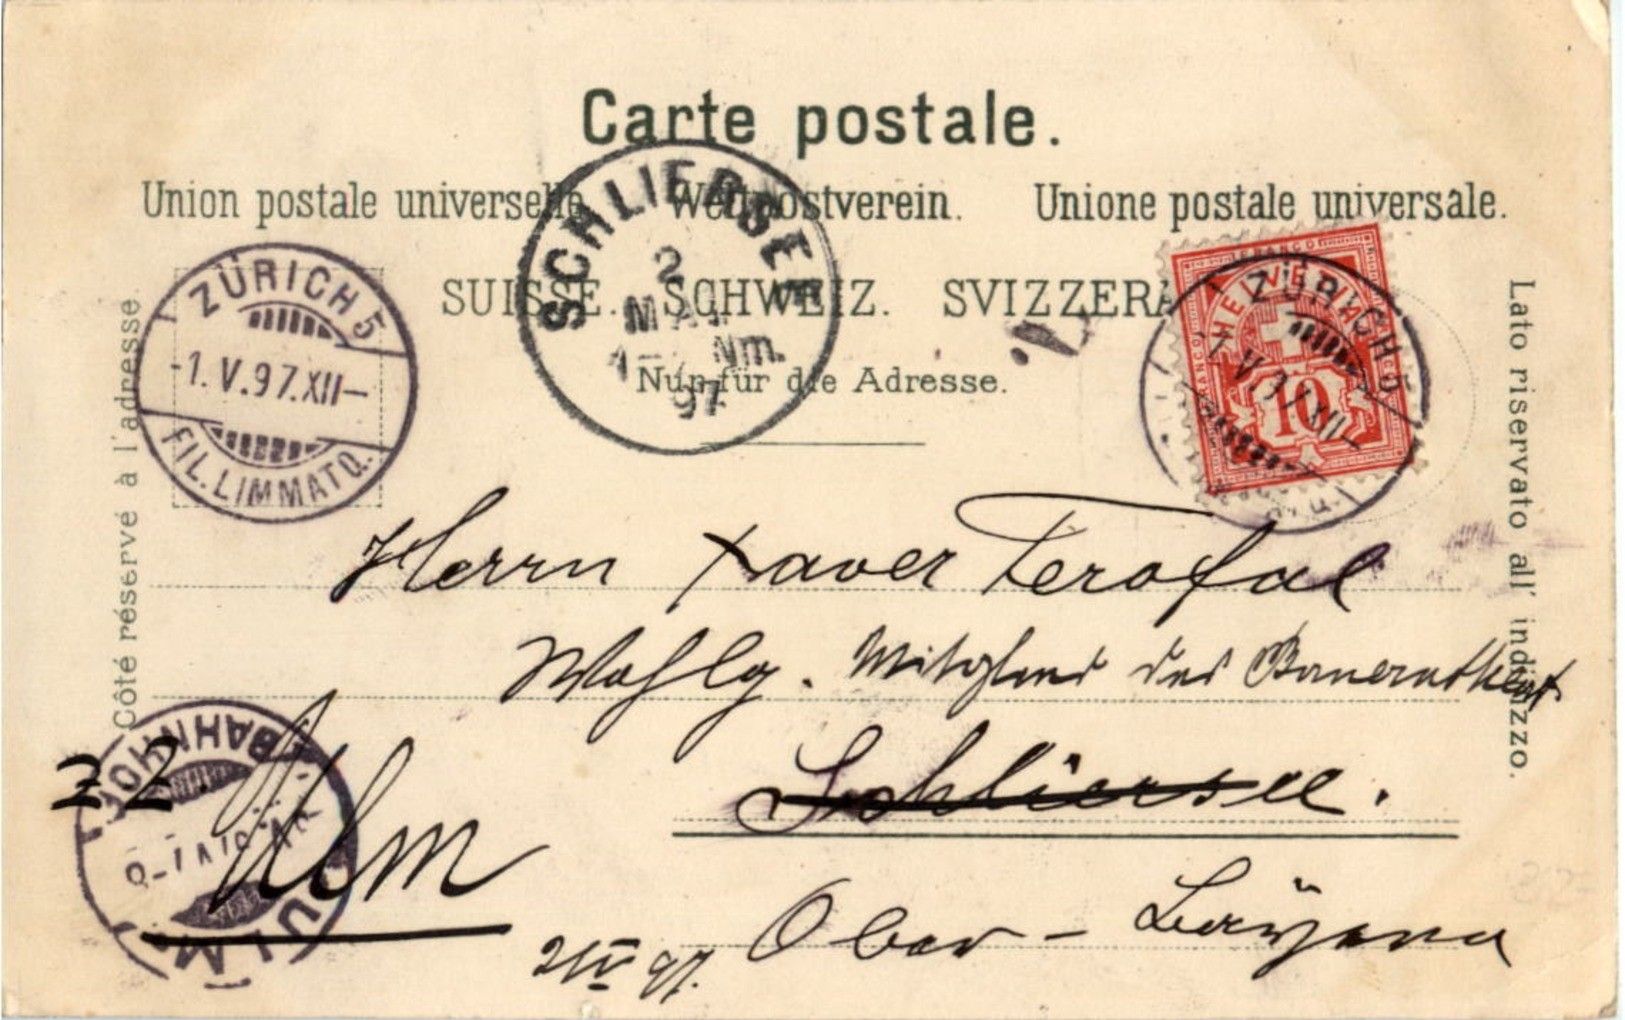 Carte postale.
Union postale universelle. Weltpostverein. Unione postale universale.
SUISSE. SCHWEIZ. SVIZZERA
Nur für die Adresse.
Côté réservé à l'adresse.
Lato riservato all' indirizzo.
ZÜRICH 5
-1.V.97.XII-
FIL. LIMMATQ.
SCHLIERSEE
2
MAI
Nm.
97
HELVETIA
FRANCO
10
ZÜRICH 5
1.V.97.XII-
Herrn Xaver Terofal
Wohlg. Mitglied des Bauerntheat
Schliersee.
Ober-Bayern
z. Z. Ulm
ULM
BAHNHOF